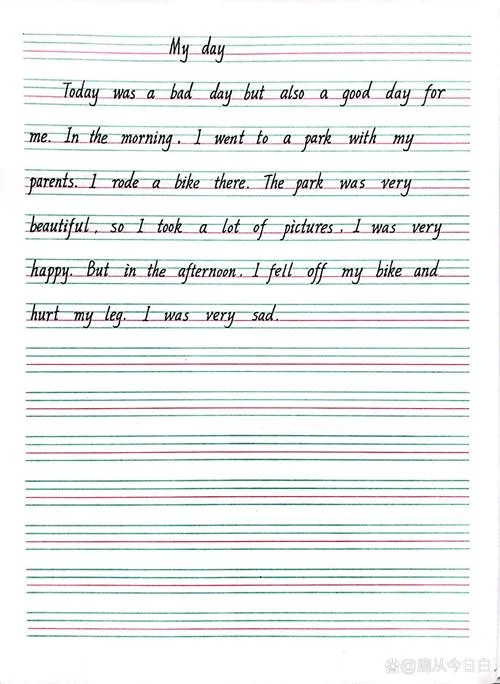 My day
Today was a bad day but also a good day for
me. In the morning, I went to a park with my
parents. I rode a bike there. The park was very
beautiful, so I took a lot of pictures. I was very
happy. But in the afternoon, I fell off my bike and
hurt my leg. I was very sad.
@鹰从今日自